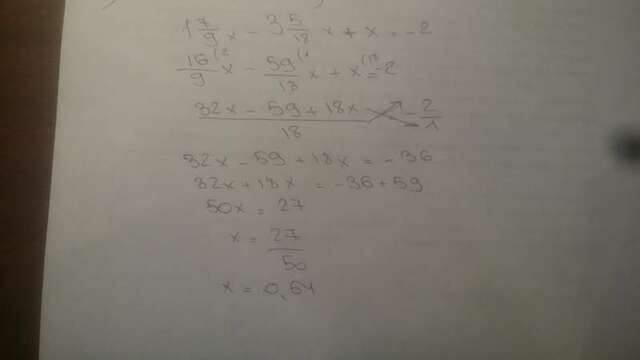 1 7/9 x - 3 5/18 x + x = -2
16/9 (2 x - 59/18 (1 x + x (18 = -2
32x - 59 + 18x / 18 = -2/1
32x - 59 + 18x = -36
32x + 18x = -36 + 59
50x = 27
x = 27/50
x = 0,54